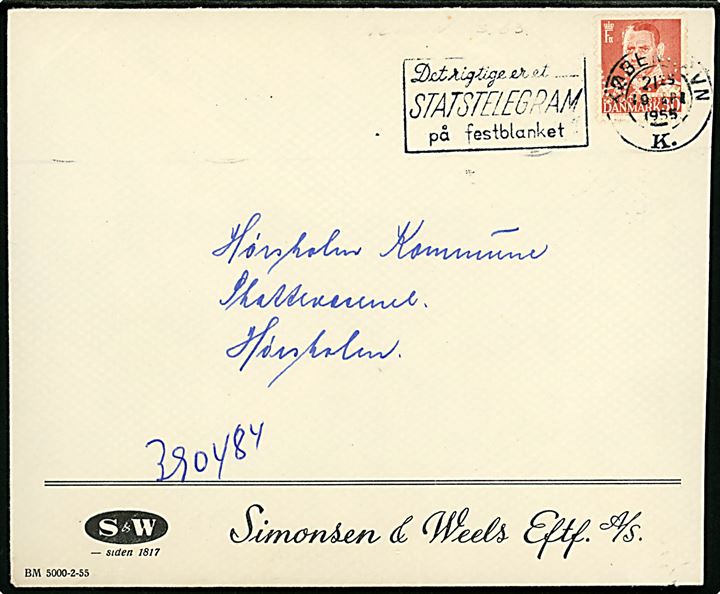 Det rigtige er et
STATSTELEGRAM
på festblanket
KØBENHAVN
1955
K.
DANMARK
Hørsholm Kommune
Skattevæsenet.
Hørsholm.
390484
S & W
— siden 1817
Simonsen & Weels Eftf. A/S.
BM 5000-2-55